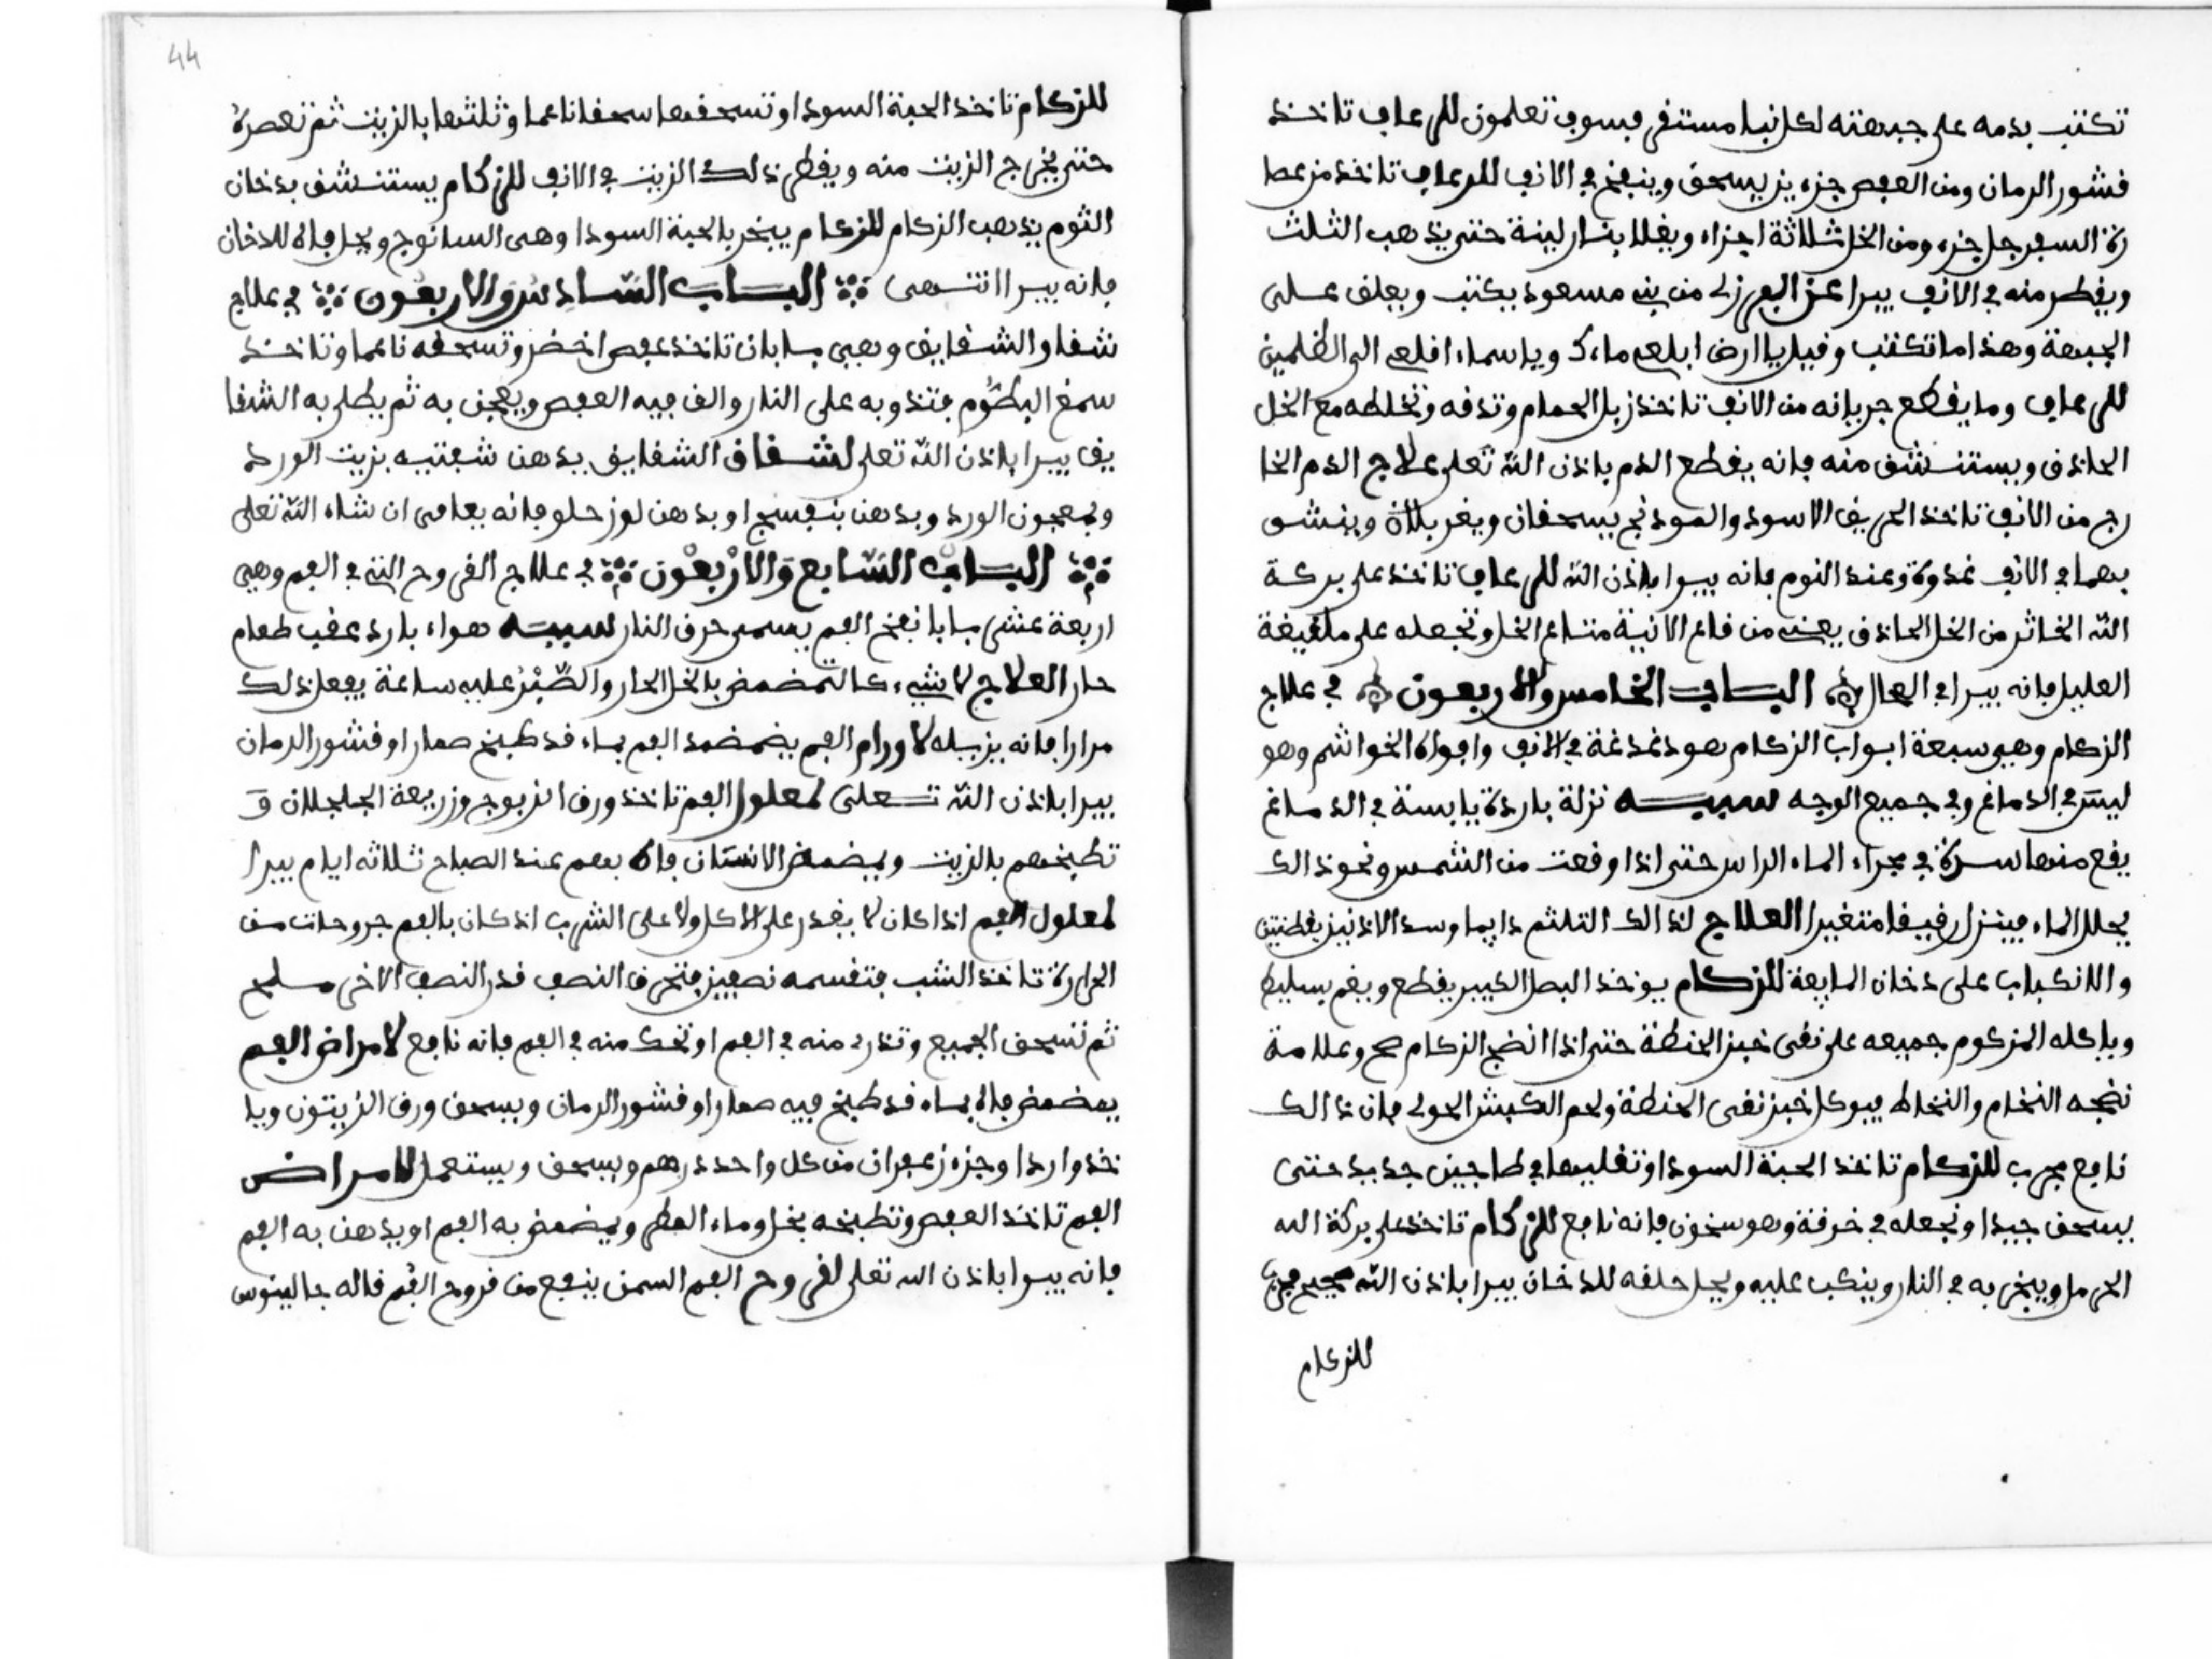 تكتب بدمه على جبهته لكل نبإ مستقر وسوف تعلمون للرعاف تاخذ
قشور الرمان ومن العفص جزءين يسحق وينفخ في الانف للرعاف تاخذ من عصا
رة السفرجل جزء ومن الخل ثلاثة اجزاء ويغلا بنار لينة حتى يذهب الثلث
ويقطر منه في الانف يبرا عن مسعود يكتب ويعلق على
الجبهة وهذا ما تكتب وقيل يا ارض ابلعي ماءك ويا سماء اقلعي الى الظلمين
للرعاف وما يقطع جريانه من الانف تاخذ زبل الحمام وتدقه وتخلطه مع الخل
الحاذق ويستنشق منه فانه يقطع الدم باذن الله تعلى علاج الدم الخا
رج من الانف تاخذ الحريق الاسود والفوذنج يسحقان ويغربلان وينشق
بهما في الانف غدوة وعند النوم فانه يبرا باذن الله للرعاف تاخذ على بركة
الله الخاثر من الخل الحاذق يعني من قاع الانية متاع الخل وتجعله على
العليل فانه يبرا في الحال الباب الخامس والاربعون في علاج
الزكام وهي سبعة ابواب الزكام هو دغدغة في الانف وافواه الخواشم وهو
ليس في الدماغ وفي جميع الوجه سببه نزلة باردة يابسة في الدماغ
يقع منها سدة في مجراء الماء الراس حتى اذا وقعت من الشمس ونحو ذالك
يحلل الماء فينزل رقيقا متغيرا العلاج لذالك التلثم دايما وسد الاذنين بقطنتين
والانكباب على دخان المايعة للزكام يوخذ البصل الكبير يقطع ويغم بسليط
وياكله المزكوم جميعه على نقى خبز الحنطة حتى اذا انضج الزكام صح وعلامة
نضجه النخام والنخاط فيوكل خبز نقى الحنطة ولحم الكبش الحولي فان ذالك
نافع مجرب للزكام تاخذ الحبة السودا وتقليها في طاجين جديد حتى
يسحق جيدا وتجعله في خرقة وهو سخون فانه نافع للزكام تاخذ على بركة الله
الحرمل ويبخر به في النار وينكب عليه ويحل حلقه للدخان يبرا باذن الله صحيح مجرب
للزكام
44
للزكام تاخذ الحبة السودا وتسحقها سحقا ناعما وثلثها بالزيت ثم تعصره
حتى يخرج الزيت منه ويقطر ذلك الزيت في الانف للزكام يستنشق بدخان
الثوم يذهب الزكام للزكام يبخر بالحبة السودا وهى السانوج ويحل فاه للدخان
فانه يبرا انتهى الباب السادس والاربعون في علاج
شقاو الشقايق وهى بابان تاخذ عفص اخضر وتسحقه ناعما وتاخذ
سمغ البطوم فتذوبه على النار والق فيه العفص ويعجن به ثم يطلى به الشقا
يق يبرا باذن الله تعلى لشقاق الشقايق يدهن شفتيه بزيت الورد
وبمعجون الورد وبدهن بنفسج او بدهن لوز حلو فانه يعافى ان شاء الله تعلى
الباب السابع والاربعون في علاج القروح التي في الفم وهى
اربعة عشر بابا نفخ الفم يسمى حرق النار سببه هواء بارد عقب طعام
حار العلاج لا شيء كالتمضمض بالخل الحار والصبر عليه ساعة يفعل ذلك
مرارا فانه يزيله لاورام الفم يضمضد الفم بماء قد طبخ صعارا وقشور الرمان
يبرا باذن الله تعلى لمعلول الفم تاخذ ورق الزبوج وزريعة الجلجلان و
تطبخهم بالزيت ويمضمض الانسان فاه بهم عند الصباح ثلاثه ايام يبرا
لمعلول الفم اذا كان لا يقدر على الاكل ولا على الشرب اذ كان بالفم جروحات من
الحرارة تاخذ الشب فتقسمه نصفين فتحرق النصف قدر النصف الاخر مسلح
ثم تسحق الجميع وتذرى منه في الفم او تحك منه في الفم فانه نافع لامراض الفم
يمضمض فاه بماء قد طبخ فيه صعارا وقشور الرمان ويسحق ورق الزيتون ويا
خذ واردا وجزء زعفران من كل واحد درهم ويسحق ويستعمل لامراض
الفم تاخذ العفص وتطبخه بخل وماء المطر ويمضمض به الفم او يدهن به الفم
فانه يبرا باذن الله تعلى لقروح الفم السمن ينفع من قروح الفم قاله جالينوس